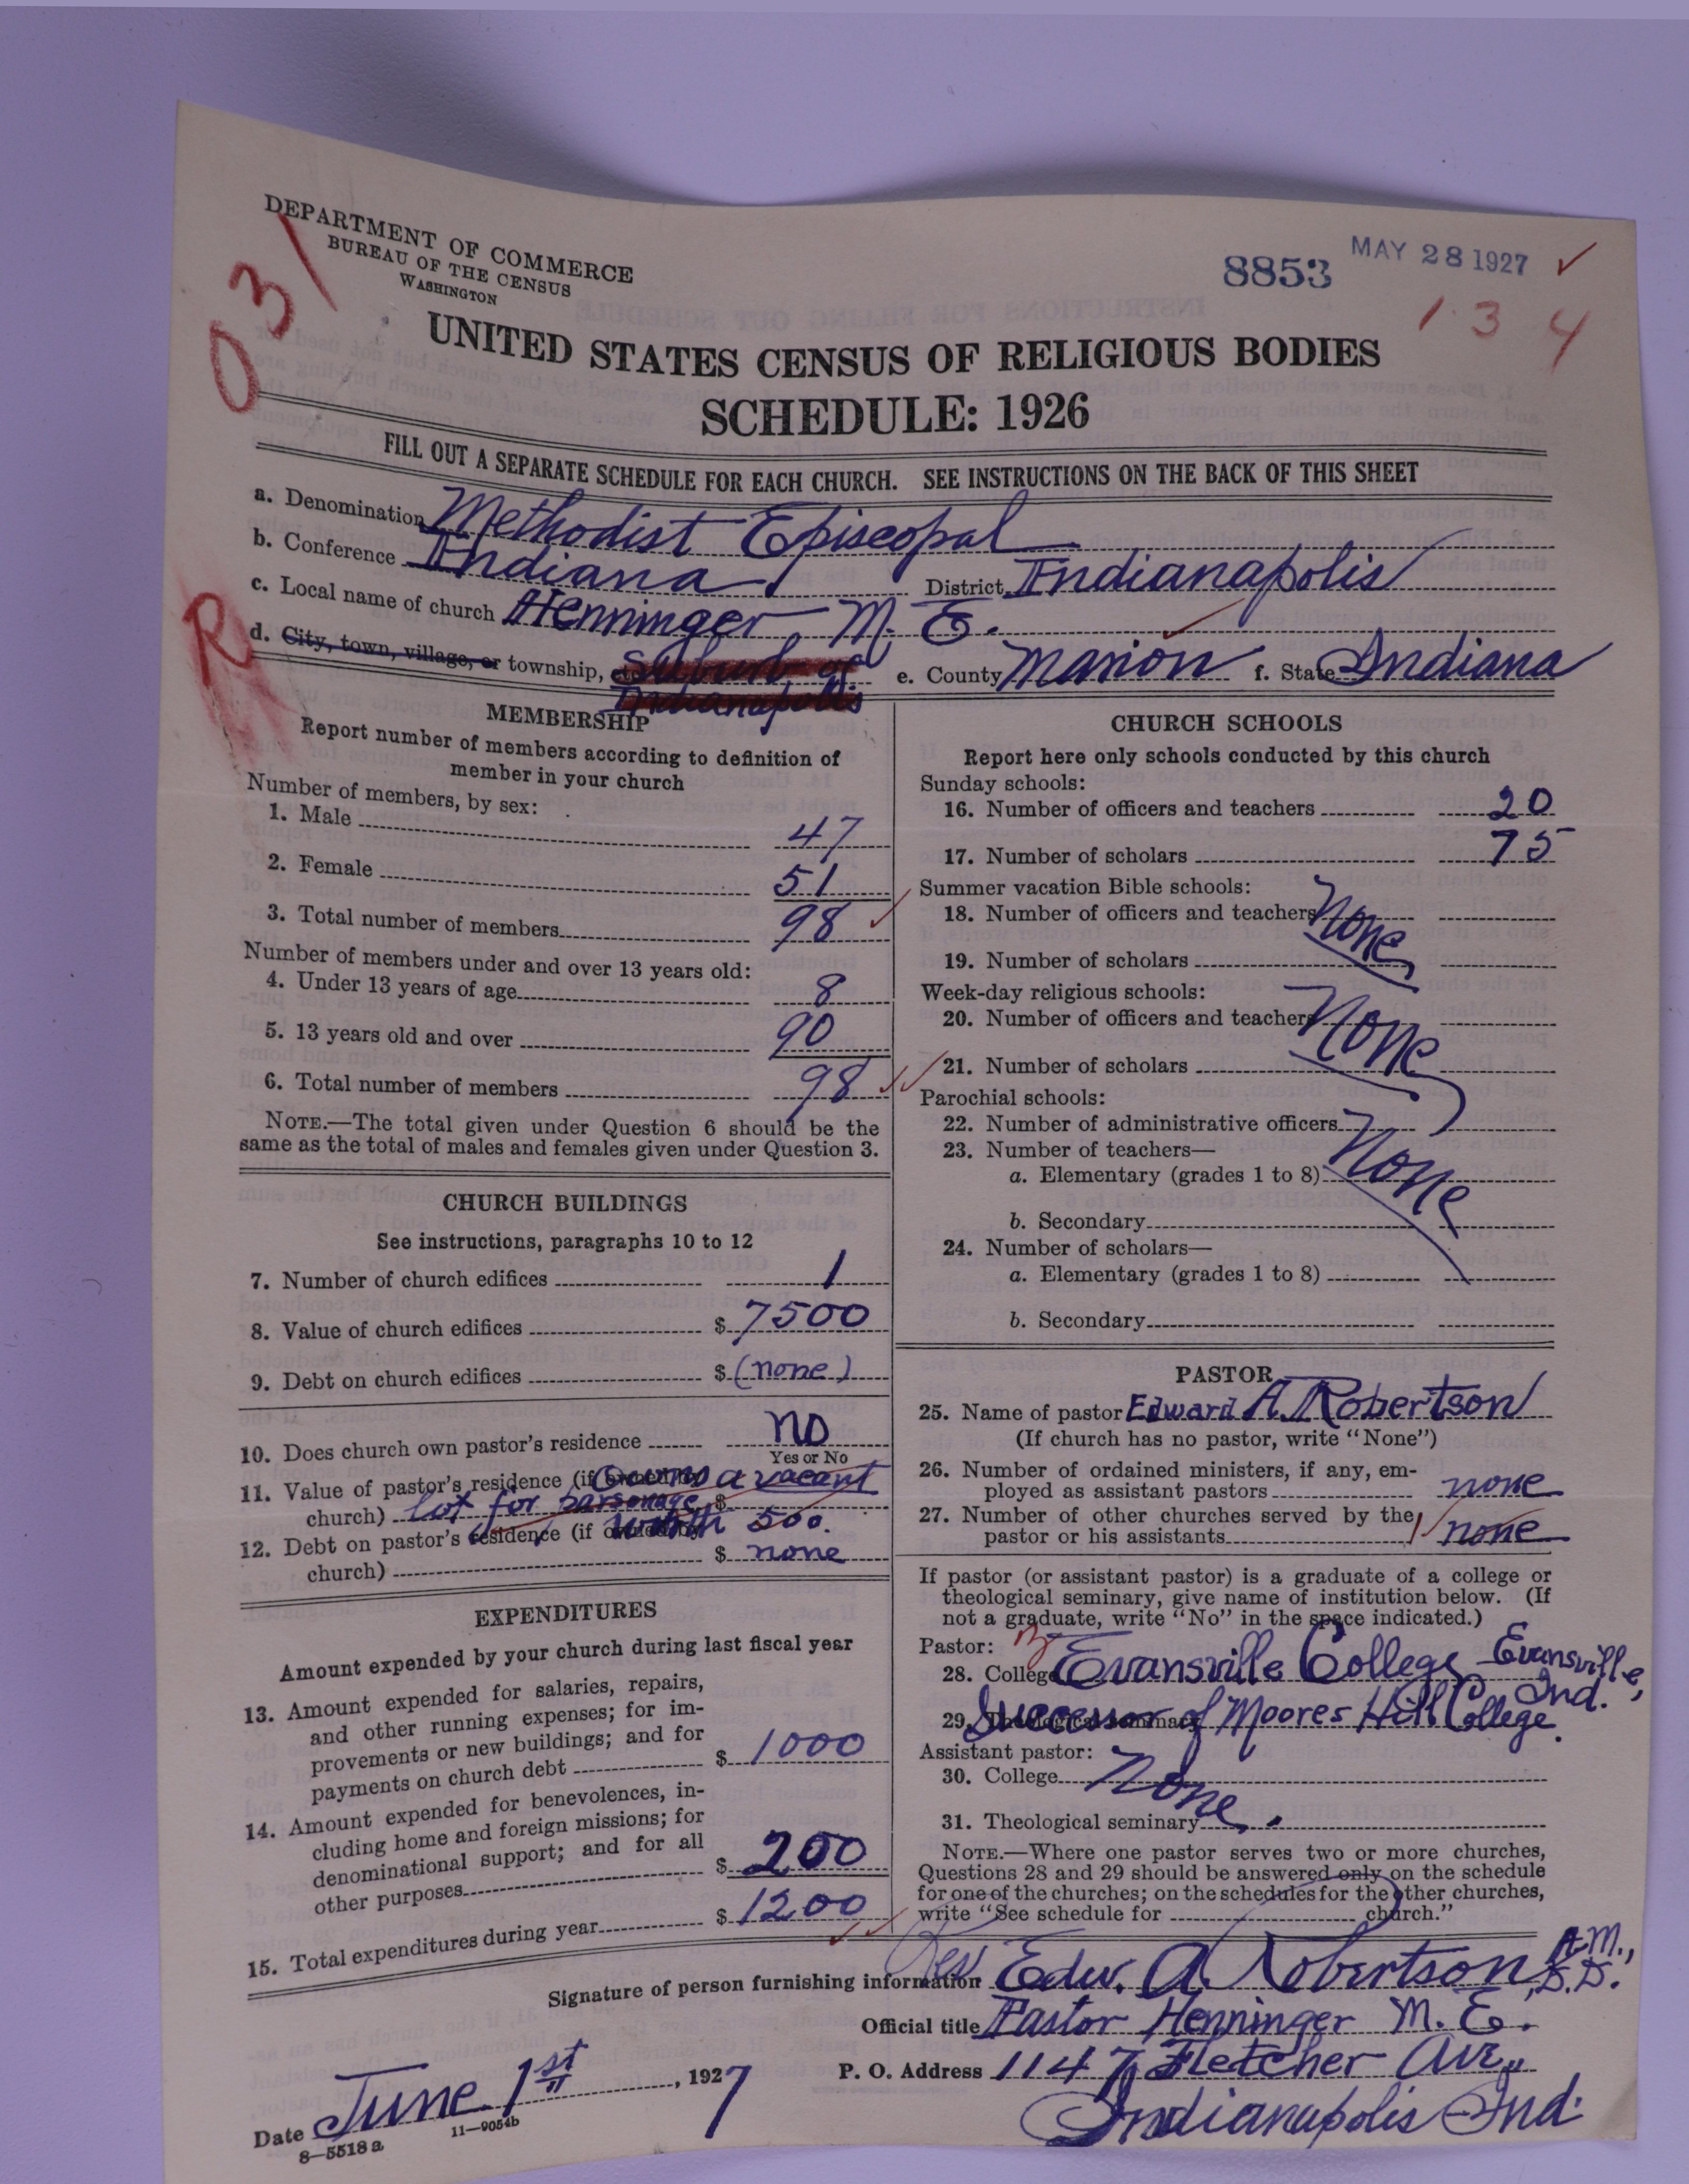 DEPARTMENT OF COMMERCE
BUREAU OF THE CENSUS
WASHINGTON
031
8853
MAY 28 1927 ✓
1 3 4
UNITED STATES CENSUS OF RELIGIOUS BODIES
SCHEDULE: 1926
FILL OUT A SEPARATE SCHEDULE FOR EACH CHURCH. SEE INSTRUCTIONS ON THE BACK OF THIS SHEET
a. Denomination Methodist Episcopal
b. Conference Indiana District Indianapolis
c. Local name of church Henninger, M. E.
R
d. City, town, village, or township, etc. Suburb of Indianapolis e. County Marion f. State Indiana
MEMBERSHIP
Report number of members according to definition of
member in your church
Number of members, by sex:
1. Male 47
2. Female 51
3. Total number of members 98
Number of members under and over 13 years old:
4. Under 13 years of age 8
5. 13 years old and over 90
6. Total number of members 98
NOTE.—The total given under Question 6 should be the
same as the total of males and females given under Question 3.
CHURCH BUILDINGS
See instructions, paragraphs 10 to 12
7. Number of church edifices 1
8. Value of church edifices $ 7500
9. Debt on church edifices $ (none)
10. Does church own pastor's residence no
Yes or No
11. Value of pastor's residence (if owned by Owns a vacant
church) lot for parsonage $
worth 500.
12. Debt on pastor's residence (if owned by
church) $ none
EXPENDITURES
Amount expended by your church during last fiscal year
13. Amount expended for salaries, repairs,
and other running expenses; for im-
provements or new buildings; and for
payments on church debt $ 1000
14. Amount expended for benevolences, in-
cluding home and foreign missions; for
denominational support; and for all
other purposes $ 200
15. Total expenditures during year $ 1200
CHURCH SCHOOLS
Report here only schools conducted by this church
Sunday schools:
16. Number of officers and teachers 20
17. Number of scholars 75
Summer vacation Bible schools:
18. Number of officers and teachers None
19. Number of scholars
Week-day religious schools:
20. Number of officers and teachers None
21. Number of scholars
Parochial schools:
22. Number of administrative officers
23. Number of teachers—
a. Elementary (grades 1 to 8) None
b. Secondary
24. Number of scholars—
a. Elementary (grades 1 to 8)
b. Secondary
PASTOR
25. Name of pastor Edward A. Robertson
(If church has no pastor, write "None")
26. Number of ordained ministers, if any, em-
ployed as assistant pastors none
27. Number of other churches served by the
pastor or his assistants none
If pastor (or assistant pastor) is a graduate of a college or
theological seminary, give name of institution below. (If
not a graduate, write "No" in the space indicated.)
Pastor:
28. College Evansville College Evansville, Ind.
29. Theological seminary Successor of Moores Hill College.
Assistant pastor:
30. College None.
31. Theological seminary
NOTE.—Where one pastor serves two or more churches,
Questions 28 and 29 should be answered only on the schedule
for one of the churches; on the schedules for the other churches,
write "See schedule for church."
Signature of person furnishing information Edw. A. Robertson, A.M., D.D.
Official title Pastor Henninger M. E.
P. O. Address 1147 Fletcher Ave.,
Indianapolis Ind.
Date June 1st, 1927
8—5518 a 11—9054b